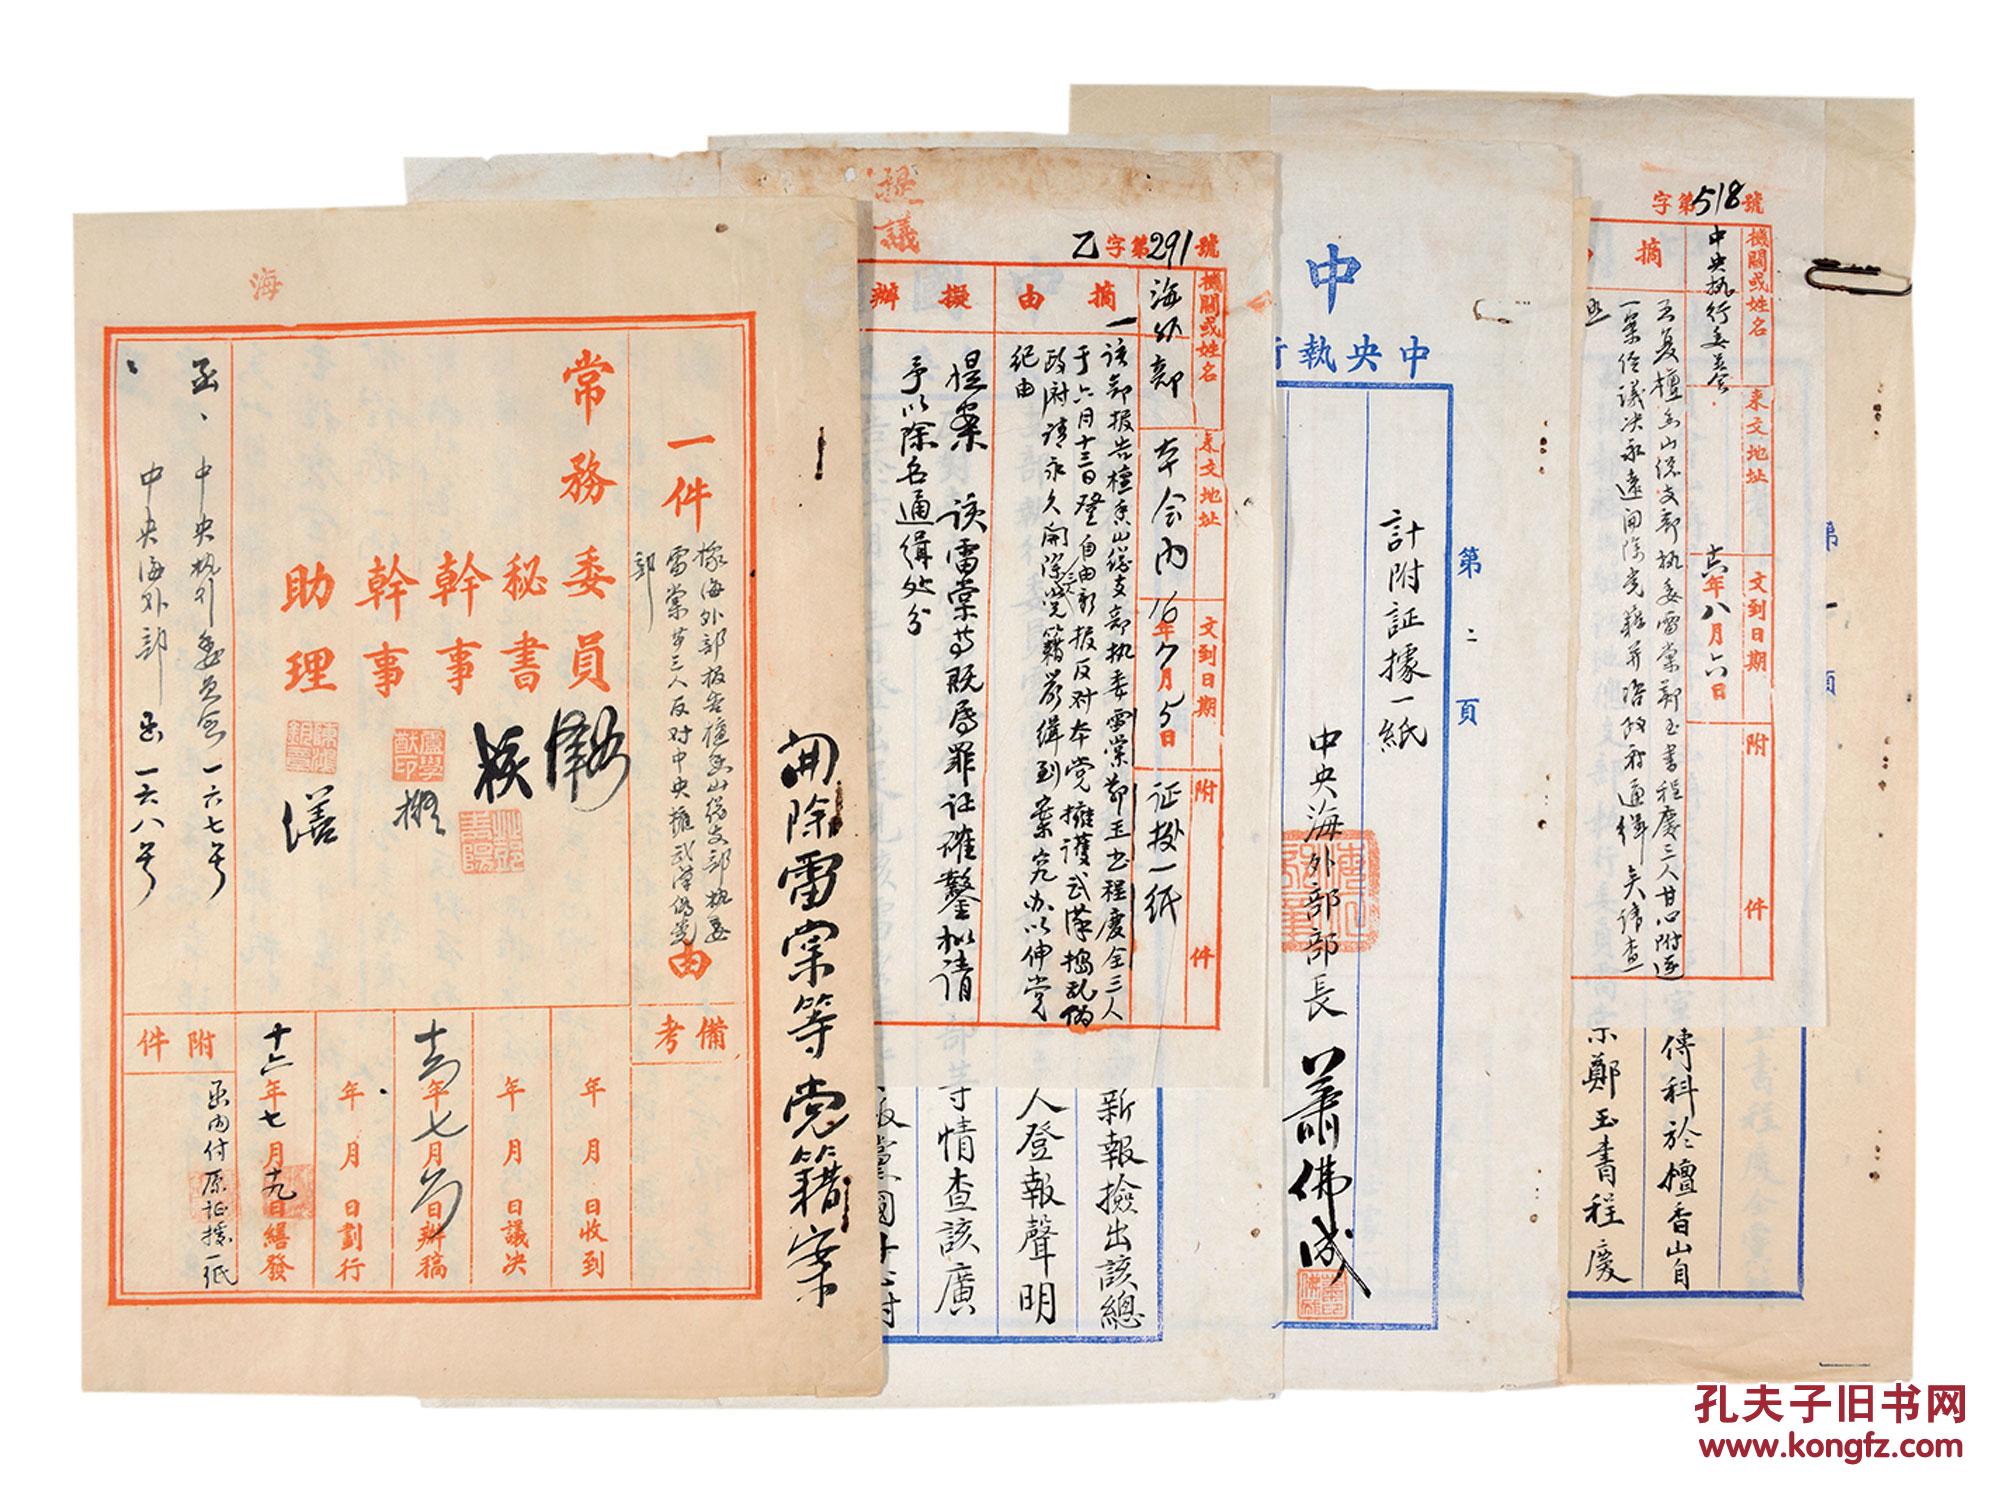 海
一件
據海外部報告檀香山總支部執委
雷棠等三人反对中央擁武漢偽党
部
由
常務委員
秘書
幹事
幹事
助理
擬
繕
函、中央执行委員会一六七号
中央海外部函一六八号
備考
年月日收到
年月日議决
年七月日辦稿
年月日劃行
十六年七月十九日繕發
附件
函内付原证據一纸
開除雷棠等党籍案
提議
乙字第291號
機關或姓名
海外部
来文地址
本会内
文到日期
16年7月5日
附件
证據一纸
摘由
一该部报告檀香山總支部执委雷棠鄭玉书程慶全三人
于六月十三日登自由新报反对本党擁護武漢搗乱偽
政府请永久開除党籍並缉到案究办以伸党
纪由
擬辦
提案 该雷棠等既属罪证確鑿拟请
予以除名通缉处分
新報撿出該總
人登報聲明
等情查該廣
中
中央執行
第二頁
計附証據一紙
中央海外部部長 蕭佛成
字第518號
機關或姓名
中央执行委员会
来文地址
文到日期
十六年八月六日
附件
摘
云复檀香山總支部执委雷棠鄭玉書程慶三人甘心附逆
一案经議决永遠開除党籍并咨政府通缉矣请查
照
第一頁
傳科於檀香山自
鄭玉書程慶
孔夫子旧书网
www.kongfz.com